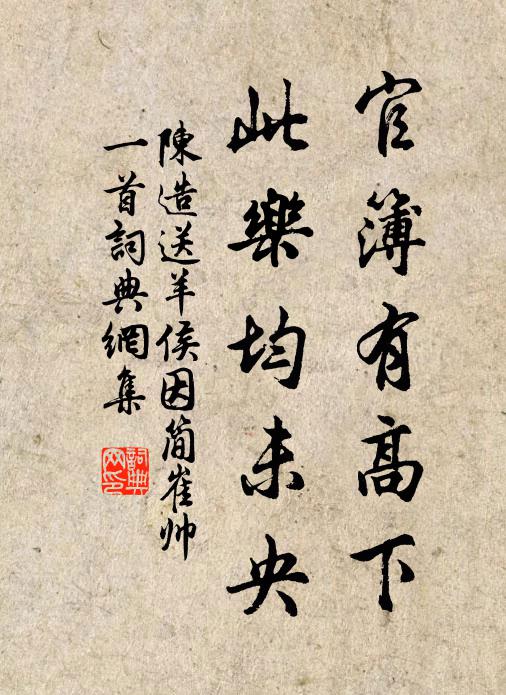 官簿有高下
此樂均未央
陳造送羊侯因简崔帅
一首詞典網集
詞典网印